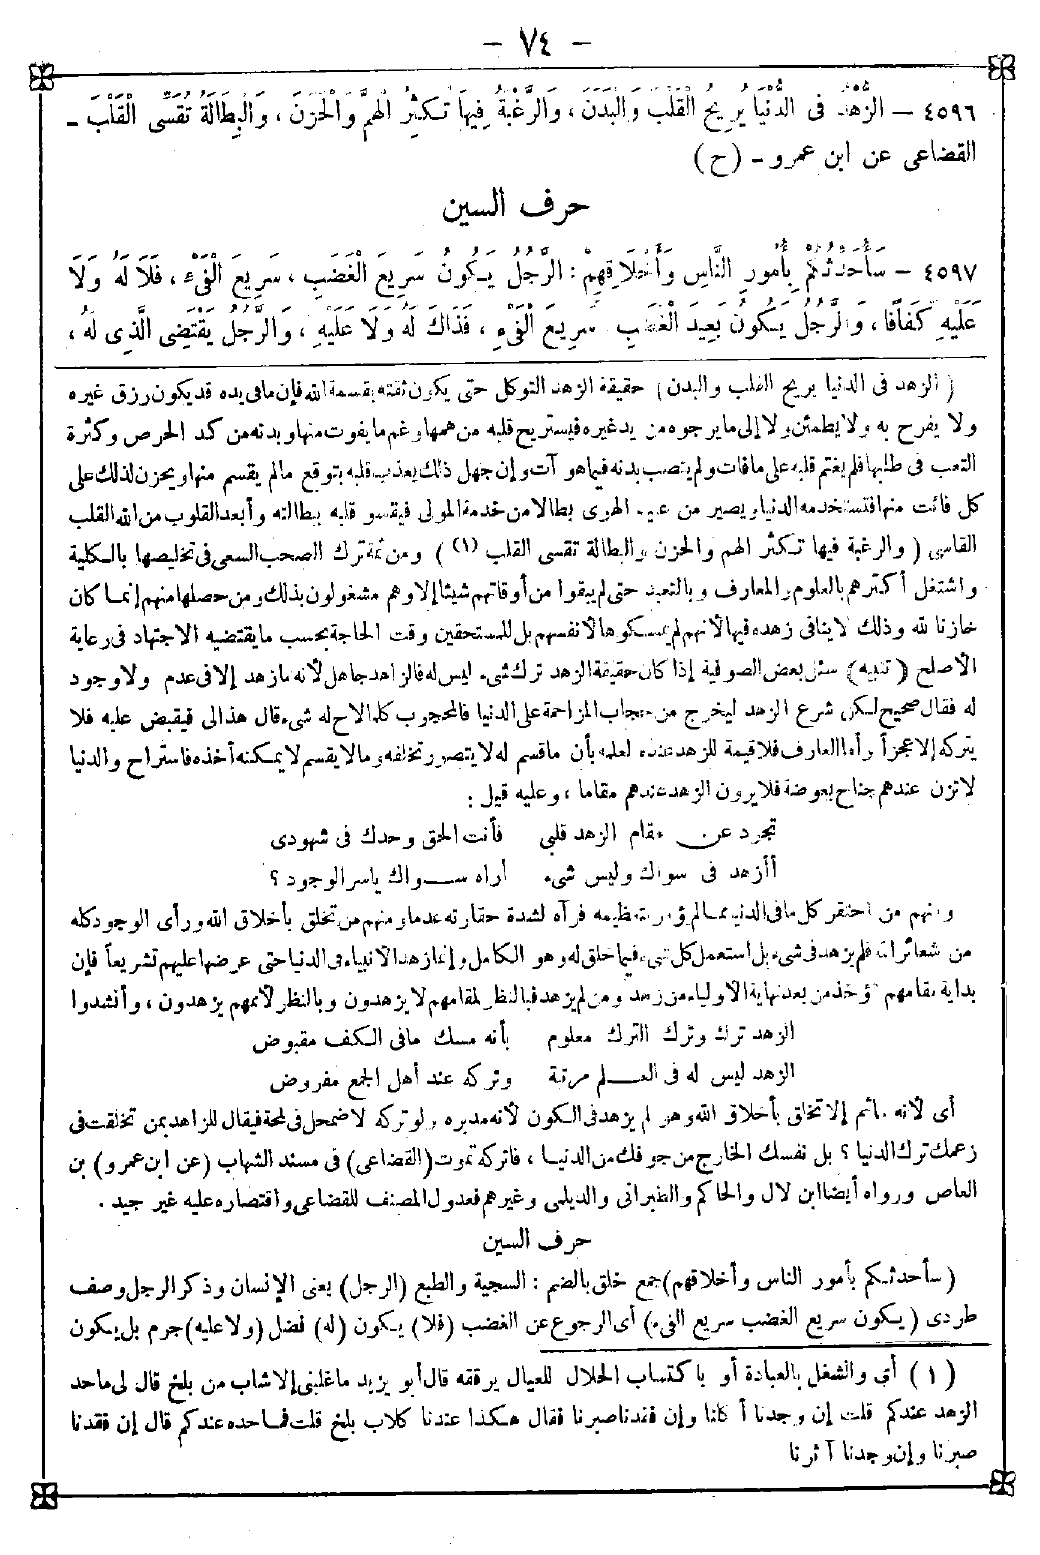 - ٧٤ -
٤٥٩٦ - الزُّهْدُ فِى الدُّنْيَا يُرِيحُ الْقَلْبَ وَالْبَدَنَ ، وَالرَّغْبَةُ فِيهَا تُكْثِرُ الْهَمَّ وَالْحَزَنَ ، وَالْبِطَالَةُ تُقَسِّى الْقَلْبَ -
القضاعى عن ابن عمرو - (ح)
حرف السين
٤٥٩٧ - سَأُحَدِّثُكُمْ بِأُمُورِ النَّاسِ وَأَخْلَاقِهِمْ : الرَّجُلُ يَكُونُ سَرِيعَ الْغَضَبِ ، سَرِيعَ الْفَىْءِ ، فَلَا لَهُ وَلَا
عَلَيْهِ كَفَافًا ، وَالرَّجُلُ يَكُونُ بَعِيدَ الْغَضَبِ سَرِيعَ الْفَىْءِ ، فَذَاكَ لَهُ وَلَا عَلَيْهِ ، وَالرَّجُلُ يَقْتَضِى الَّذِى لَهُ ،
( الزهد فى الدنيا يريح القلب والبدن ) حقيقة الزهد التوكل حتى يكون ثقته بقسمة الله فإن ما فى يده قد يكون رزق غيره
ولا يفرح به ولا يطمئن ولا إلى ما يرجوه من يد غيره فيستريح قلبه من همها وغم ما يفوت منها وبدنه من كد الحرص وكثرة
التعب فى طلبها فلم يغتم قلبه على ما فات ولم ينصب بدنه فيما هو آت وإن جهل ذلك يعذب قلبه بتوقع ما لم يقسم منها ويحزن لذلك على
كل فائت منها فتستخدمه الدنيا ويصير من عبيد الهوى بطالا من خدمة المولى فيقسو قلبه ببطالته وأبعد القلوب من الله القلب
القاسى ( والرغبة فيها تكثر الهم والحزن والبطالة تقسى القلب (١) ) ومن ثمة ترك الصحب السعى فى تخليصها بالكلية
واشتغل أكثرهم بالعلوم والمعارف وبالتعبد حتى لم يبقوا من أوقاتهم شيئا إلا وهم مشغولون بذلك ومن حصلها منهم إنما كان
خازنا لله وذلك لا ينافى زهده فيها لأنهم لم يمسكوها لأنفسهم بل للمستحقين وقت الحاجة بحسب ما يقتضيه الاجتهاد فى رعاية
الأصلح ( تنبيه ) سئل بعض الصوفية إذا كان حقيقة الزهد ترك شىء ليس له فالزاهد جاهل لأنه ما زهد إلا فى عدم ولا وجود
له فقال صحيح لكن شرع الزهد ليخرج من حجاب المزاحمة على الدنيا فالمحجوب كلما لاح له شىء قال هذا لى فيقبض عليه فلا
يتركه إلا عجزاً وأما العارف فلا قيمة للزهد عنده لعلمه بأن ما قسم له لا يتصور تخلفه وما لا يقسم لا يمكنه أخذه فاستراح والدنيا
لا تزن عندهم جناح بعوضة فلا يرون الزهد عندهم مقاما ، وعليه قيل :
تجرد عن مقام الزهد قلبى    فأنت الحق وحدك فى شهودى
أأزهد فى سواك وليس شىء    أراه سواك يا سر الوجود ؟
ومنهم من احتقر كل ما فى الدنيا مما لم يؤمر بتعظيمه فرآه لشدة حقارته عدما ومنهم من تخلق بأخلاق الله ورأى الوجود كله
من شعائر الله فلم يزهد فى شىء بل استعمل كل شىء فيما خلق له وهو الكامل وإنما زهد الأنبياء فى الدنيا حتى عرضها عليهم تشريعاً فإن
بداية مقامهم تؤخذ من بعد نهاية الأولياء من زهد ومن لم يزهد فبالنظر لمقامهم لا يزهدون وبالنظر لأممهم يزهدون ، وأنشدوا
الزهد ترك وترك الترك معلوم    بأنه مسك ما فى الكف مقبوض
الزهد ليس له فى العلم مرتبة    وتركه عند أهل الجمع مفروض
أى لأنه ما ثم إلا تخلق بأخلاق الله وهو لم يزهد فى الكون لأنه مدبره ولو تركه لاضمحل فى لمحة فيقال للزاهد بمن تخلقت فى
زعمك ترك الدنيا ؟ بل نفسك الخارج من جوفك من الدنيا ، فاتركه تموت (القضاعى) فى مسند الشهاب (عن ابن عمرو) بن
العاص ورواه أيضا ابن لال والحاكم والطبرانى والديلمى وغيرهم فعدول المصنف للقضاعى واقتصاره عليه غير جيد .
حرف السين
(سأحدثكم بأمور الناس وأخلاقهم) جمع خلق بالضم : السجية والطبع (الرجل) يعنى الإنسان وذكر الرجل وصف
طردى (يكون سريع الغضب سريع الفىء) أى الرجوع عن الغضب (فلا) يكون (له) فضل (ولا عليه) جرم بل يكون
(١) أى والشغل بالعبادة أو باكتساب الحلال للعيال يرققه قال أبو يزيد ما غلبنى إلا شاب من بلخ قال لى ما حد
الزهد عندكم قلت إن وجدنا أكلنا وإن فقدنا صبرنا فقال هكذا عندنا كلاب بلخ قلت فما حده عندكم قال إن فقدنا
صبرنا وإن وجدنا آثرنا